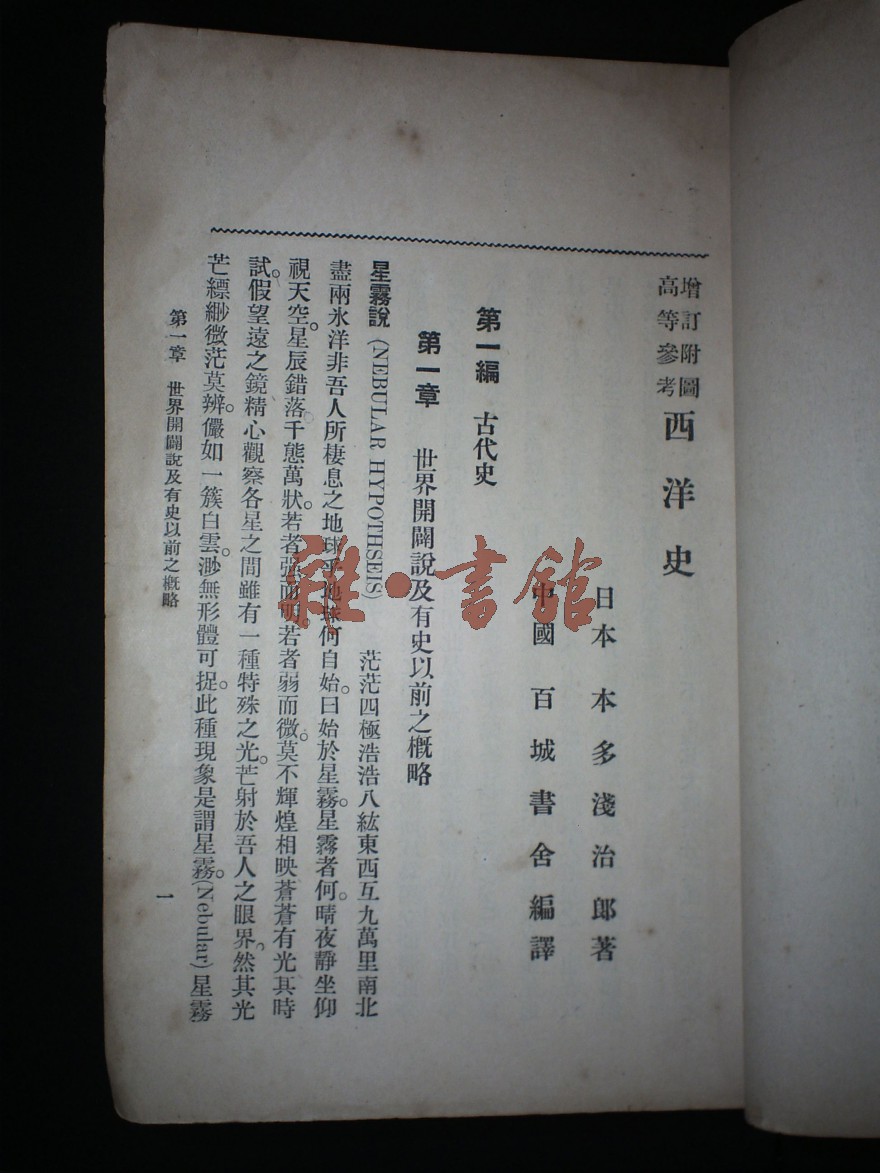 增訂附圖
高等參考
西洋史
日本 本多淺治郎著
中國 百城書舍編譯
第一編 古代史
第一章 世界開闢說及有史以前之概略
星霧說 (NEBULAR HYPOTHSEIS) 茫茫四極浩浩八紘東西互九萬里南北
盡兩氷洋非吾人所棲息之地球乎地球何自始。曰始於星霧。星霧者何。晴夜靜坐仰
視天空。星辰錯落。千態萬狀。若者强而明。若者弱而微。莫不輝煌相映蒼蒼有光其時
試假望遠之鏡精心觀察各星之間雖有一種特殊之光。芒射於吾人之眼界。然其光
芒縹緲微茫莫辨。儼如一簇白雲。渺無形體可捉。此種現象是謂星霧。(Nebular)星霧
第一章 世界開闢說及有史以前之概略
一
雜·書館